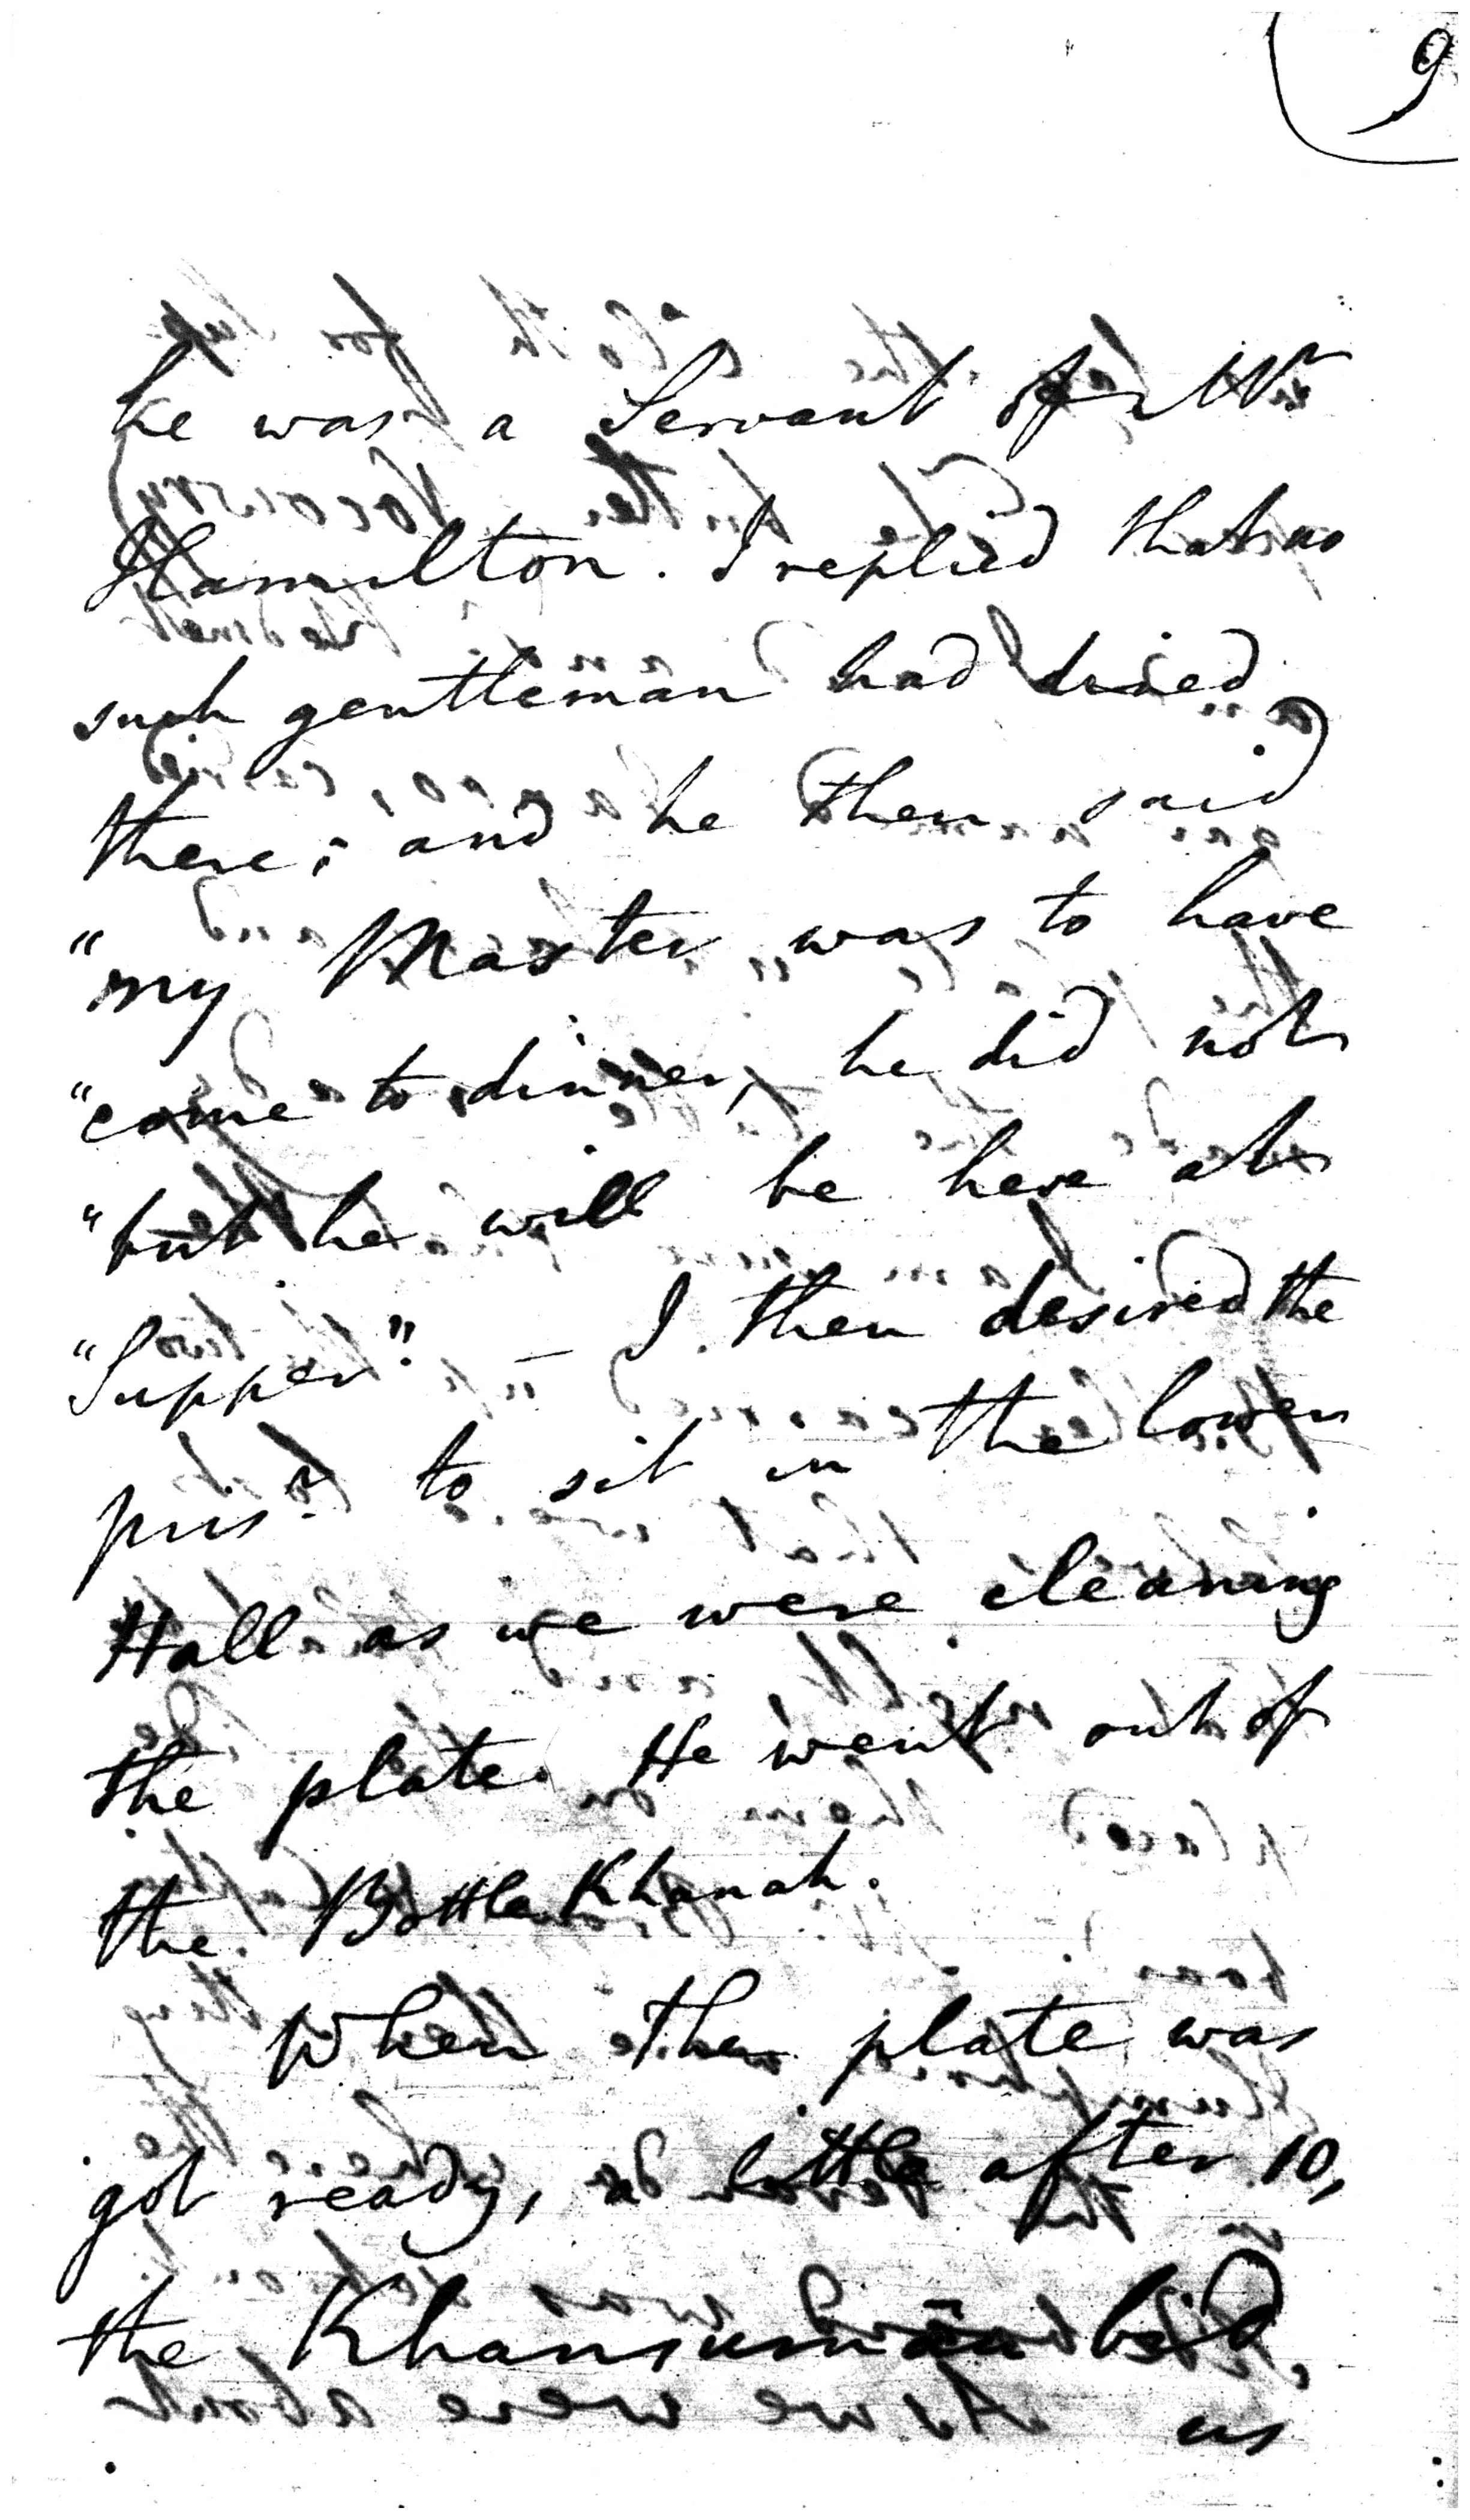 9
he was a Servant of Mr
Hamilton. I replied that no
such gentleman had dined
there; and he then said
"my Master was to have
"come to dinner, he did not
"but he will be here at
"Supper" – I then desired the
prisr to sit in the lower
Hall as we were cleaning
the plate. He went out of
the Bottle Khanah.
When the plate was
got ready, a little after 10,
the Khansuman bid,
us